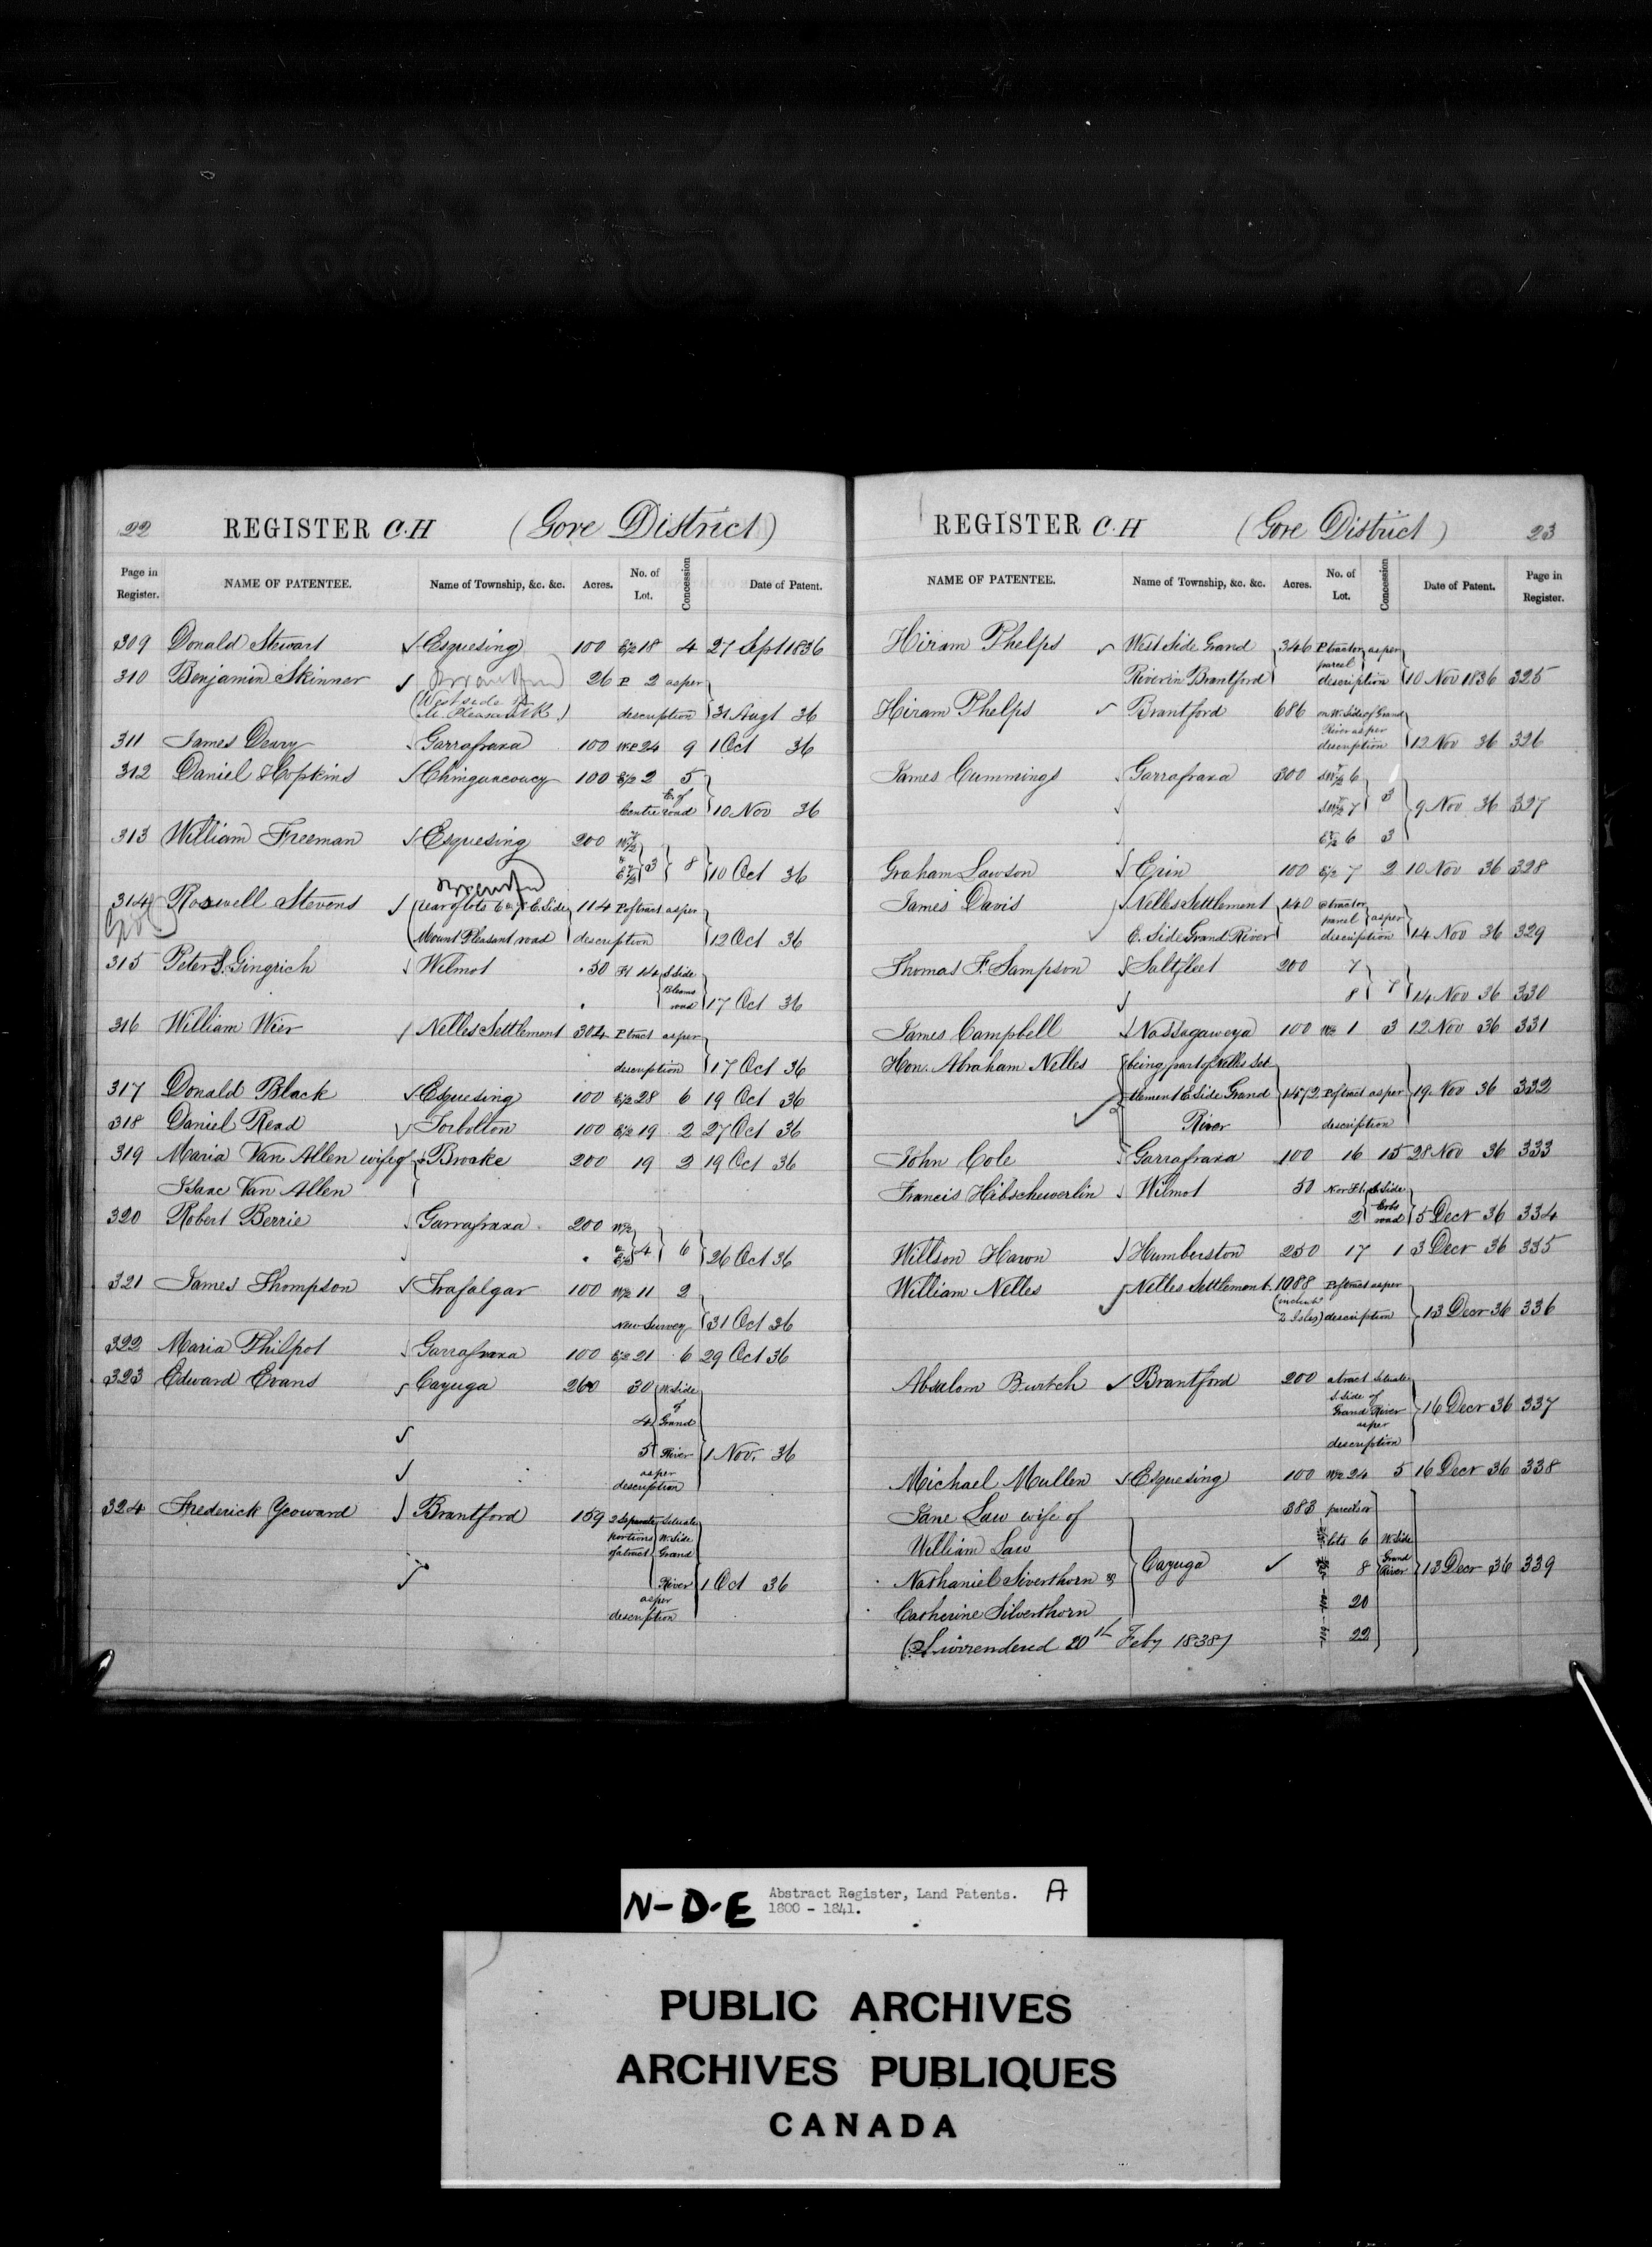 22 REGISTER C.H (Gore District)
Page in Register. NAME OF PATENTEE. Name of Township, &c. &c. Acres. No. of Lot. Concession Date of Patent.
309 Donald Stewart Esquesing 100 E½ 18 4 27 Sept 1836
310 Benjamin Skinner Brantford 26 P 2 as per
(West side Mt Pleasant R.) description 31 Augt 36
311 James Deary Garrafraxa 100 24 9 1 Oct 36
312 Daniel Hopkins Chinguacoucy 100 E½ 2 5
E. of
Centre road 10 Nov 36
313 William Freeman Esquesing 200 W½
& E½ 3 8 10 Oct 36
Brantford
314 Roswell Stevens (rear of lots 6 & 7 E. Side 114 P of tract as per
Mount Pleasant road description 12 Oct 36
315 Peter S. Gingrich Wilmot 50 Pt 14 S. Side
Bleams
road 17 Oct 36
316 William Wier Nelles Settlement 304 P tract as per
description 17 Oct 36
317 Donald Black Esquesing 100 E½ 28 6 19 Oct 36
318 Daniel Read Torbolton 100 E½ 19 2 27 Oct 36
319 Maria Van Allen wife of Brooke 200 19 2 19 Oct 36
Isaac Van Allen
320 Robert Berrie Garrafraxa 200 W½
& E½ 4 6 26 Oct 36
321 James Thompson Trafalgar 100 W½ 11 2
New Survey 31 Oct 36
322 Maria Philpot Garrafraxa 100 E½ 21 6 29 Oct 36
323 Edward Evans Cayuga 260 30 W. Side
of
4 Grand
5 River 1 Nov. 36
as per
description
324 Frederick Yeoward Brantford 159 2 Separate Situate
portions W. Side
of a tract Grand
River 1 Oct 36
as per
description
REGISTER C.H (Gore District) 23
NAME OF PATENTEE. Name of Township, &c. &c. Acres. No. of Lot. Concession Date of Patent. Page in Register.
Hiram Phelps West Side Grand 346 P tract or as per
parcel
River in Brantford description 10 Nov 1836 325
Hiram Phelps Brantford 686 on W. Side of Grand
River as per
description 12 Nov 36 326
James Cummings Garrafraxa 300 SW½ 6
SW½ 7 3 9 Nov 36 327
E½ 6 3
Graham Lawson Erin 100 E½ 7 2 10 Nov 36 328
James Davis Nelles Settlement 140 P tract or
parcel as per
E. Side Grand River description 14 Nov 36 329
Thomas F. Sampson Saltfleet 200 7
8 7 14 Nov 36 330
James Campbell Nassagaweya 100 W½ 1 3 12 Nov 36 331
Hon. Abraham Nelles being part of Nelles Set
tlement E Side Grand 1472 P of tract as per 19 Nov 36 332
River description
John Cole Garrafraxa 100 16 15 28 Nov 36 333
Francis Hibschewerlin Wilmot 50 Nor Pt S. Side
2 Erbs road 5 Decr 36 334
Willson Hawn Humberston 250 17 1 3 Decr 36 335
William Nelles Nelles Settlement 1088 P of tract as per
2 Isles) description 13 Decr 36 336
Absalom Burtch Brantford 200 a tract situate
S. Side of
Grand River 16 Decr 36 337
as per
description
Michael Mullen Esquesing 100 W½ 24 5 16 Decr 36 338
Jane Law wife of 383 parcel or
William Law lots 6 W. Side
Nathaniel Silverthorn & Cayuga 8 Grand River 13 Decr 36 339
Catherine Silverthorn 20
(Surrendered 20th Feby 1838) 22
N-D-E Abstract Register, Land Patents. A
1800 - 1841.
PUBLIC ARCHIVES
ARCHIVES PUBLIQUES
CANADA